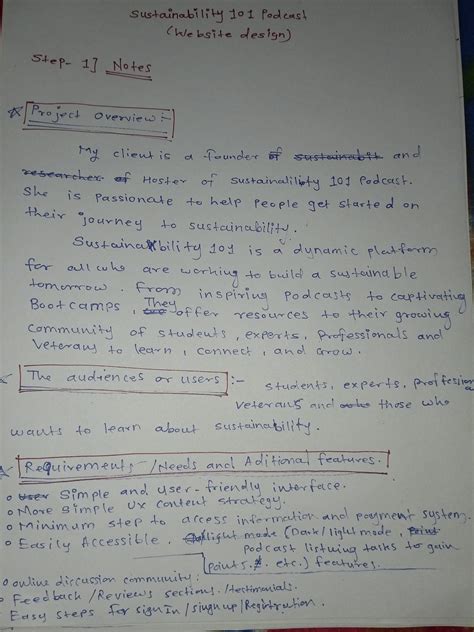 Sustainability 101 Podcast
(Website design)
Step- 1] Notes
Project Overview :-
My client is a founder of sustainabit and
researcher of Hoster of Sustainalility 101 Podcast.
She is passionate to help people get started on
their journey to sustainability.
Sustainability 101 is a dynamic platform
for all who are working to build a sustainable
tomorrow. From inspiring Podcasts to captivating
Bootcamps, They offer resources to their growing
community of students, experts, Professionals and
Veterans to learn, connect, and Grow.
The audiences or users :- students, experts, profession
Veterans and those who
wants to learn about sustainability.
Requirements /Needs and Aditional features.
User Simple and user-friendly interface.
More Simple Ux content strategy.
Minimum step to access information and payment system.
Easily Accessible. light mode (Dark/light mode, Point
Podcast listning talks to gain
points. etc.) features.
online discussion community.
Feedback /Reviews sections /testimonials.
Easy steps for signIn/signup/Registration.